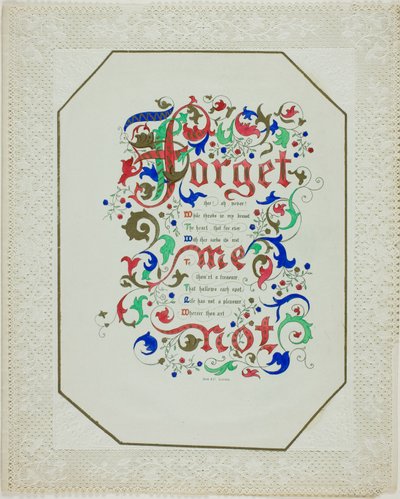 Forget
thee! oh never!
While throbs in my breast
The heart that for ever
With thee
me
To
thou'rt a treasure
That hallows each spot
Life has not a pleasure
Wherever thou art
not